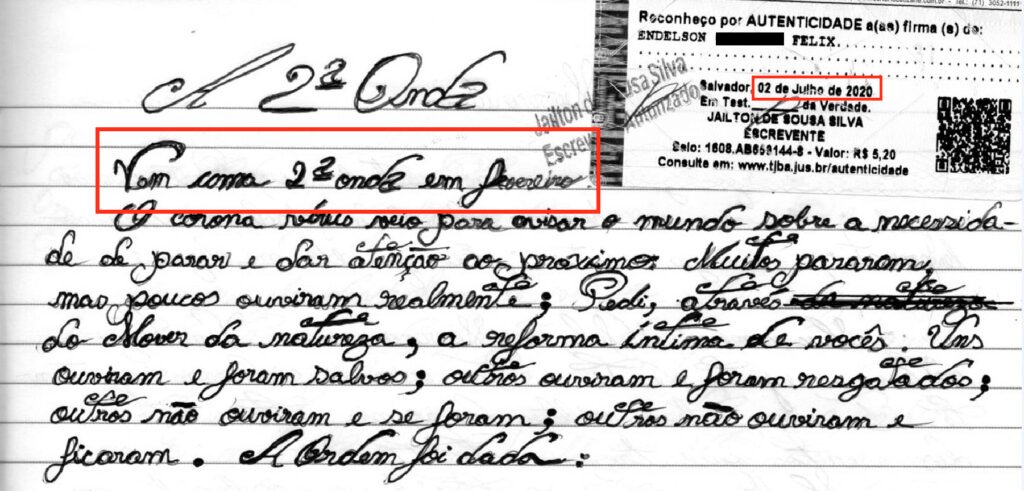 Tel.: (71) 3052-1111
Reconheço por AUTENTICIDADE a(as) firma (s) de:
ENDELSON FELIX
Salvador, 02 de Julho de 2020
Em Test. da Verdade.
JAILTON DE SOUSA SILVA
ESCREVENTE
Selo: 1608.AB659144-8 - Valor: R$ 5,20
Consulte em: www.tjba.jus.br/autenticidade
Jailton d osa Silva
Escrev Autorizado
A 2ª Onda
Vem coma 2ª onda em fevereiro:
O corona vírus veio para avisar o mundo sobre a necessida-
de de parar e dar atenção ao próximo. Muitos pararam,
mas poucos ouviram realmente; Pedi, através
do Mover da natureza, a reforma íntima de vocês. Uns
ouviram e foram salvos; outros ouviram e foram resgatados;
outros não ouviram e se foram; outros não ouviram e
ficaram. A Ordem foi dada: